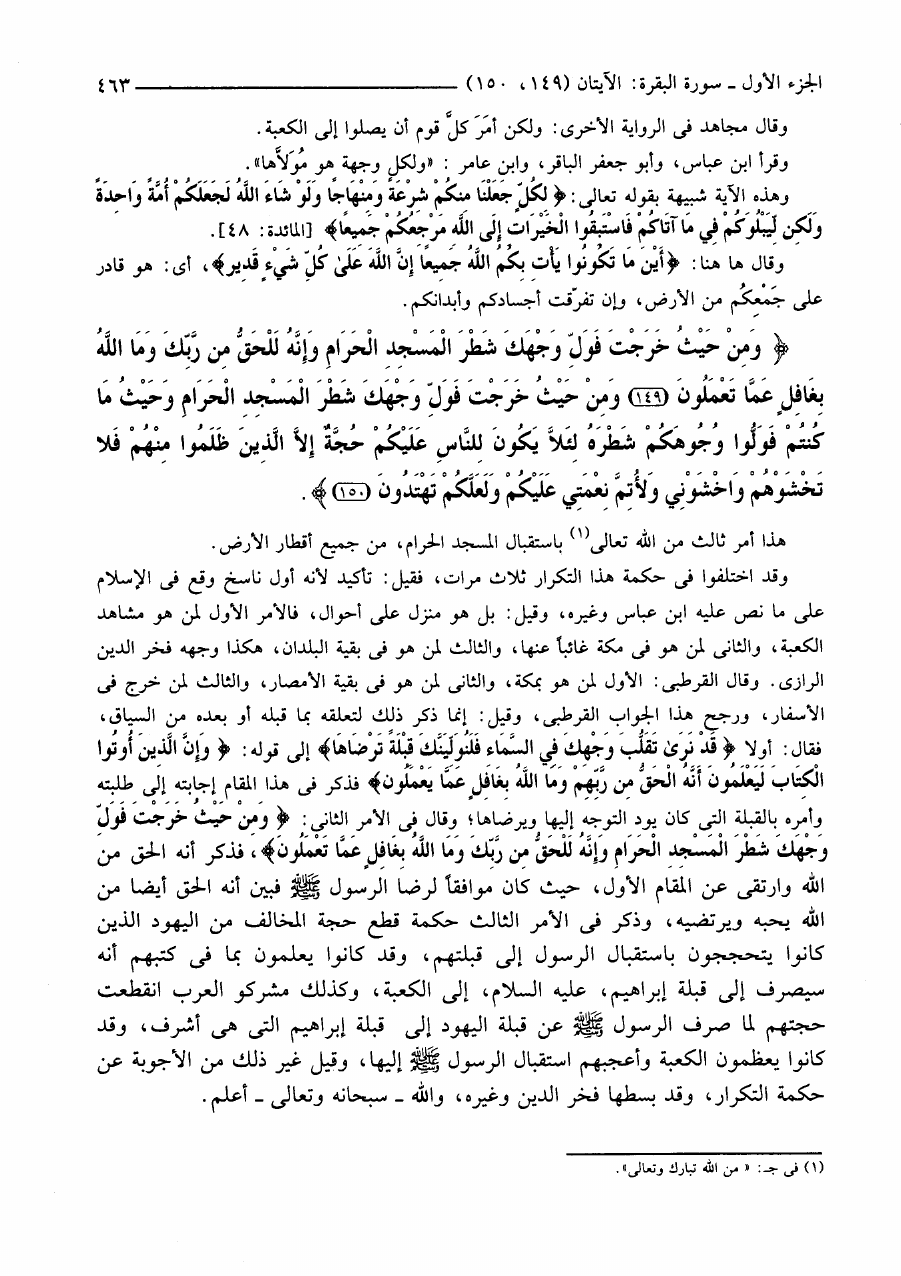 الجزء الأول ـ سورة البقرة: الآيتان (١٤٩، ١٥٠) ــــــــــــــــــــ ٤٦٣
وقال مجاهد فى الرواية الأخرى: ولكن أمَرَ كلَّ قوم أن يصلوا إلى الكعبة.
وقرأ ابن عباس، وأبو جعفر الباقر، وابن عامر : «ولكل وجهة هو مُوَلاَّها».
وهذه الآية شبيهة بقوله تعالى: ﴿ لِكُلٍّ جَعَلْنَا مِنكُمْ شِرْعَةً وَمِنْهَاجًا وَلَوْ شَاءَ اللَّهُ لَجَعَلَكُمْ أُمَّةً وَاحِدَةً
وَلَكِن لِّيَبْلُوَكُمْ فِي مَا آتَاكُمْ فَاسْتَبِقُوا الْخَيْرَاتِ إِلَى اللَّهِ مَرْجِعُكُمْ جَمِيعًا﴾ [المائدة: ٤٨].
وقال ها هنا: ﴿أَيْنَ مَا تَكُونُوا يَأْتِ بِكُمُ اللَّهُ جَمِيعًا إِنَّ اللَّهَ عَلَىٰ كُلِّ شَيْءٍ قَدِير﴾، أى: هو قادر
على جَمْعكُم من الأرض، وإن تفرّقت أجسادكم وأبدانكم.
﴿ وَمِنْ حَيْثُ خَرَجْتَ فَوَلِّ وَجْهَكَ شَطْرَ الْمَسْجِدِ الْحَرَامِ وَإِنَّهُ لَلْحَقُّ مِن رَّبِّكَ وَمَا اللَّهُ
بِغَافِلٍ عَمَّا تَعْمَلُونَ (١٤٩) وَمِنْ حَيْثُ خَرَجْتَ فَوَلِّ وَجْهَكَ شَطْرَ الْمَسْجِدِ الْحَرَامِ وَحَيْثُ مَا
كُنتُمْ فَوَلُّوا وُجُوهَكُمْ شَطْرَهُ لِئَلاَّ يَكُونَ لِلنَّاسِ عَلَيْكُمْ حُجَّةٌ إِلاَّ الَّذِينَ ظَلَمُوا مِنْهُمْ فَلا
تَخْشَوْهُمْ وَاخْشَوْنِي وَلأُتِمَّ نِعْمَتِي عَلَيْكُمْ وَلَعَلَّكُمْ تَهْتَدُونَ (١٥٠)﴾ .
هذا أمر ثالث من الله تعالى(١) باستقبال المسجد الحرام، من جميع أقطار الأرض.
وقد اختلفوا فى حكمة هذا التكرار ثلاث مرات، فقيل: تأكيد لأنه أول ناسخ وقع فى الإسلام
على ما نص عليه ابن عباس وغيره، وقيل: بل هو منزل على أحوال، فالأمر الأول لمن هو مشاهد
الكعبة، والثانى لمن هو فى مكة غائباً عنها، والثالث لمن هو فى بقية البلدان، هكذا وجهه فخر الدين
الرازى. وقال القرطبى: الأول لمن هو بمكة، والثانى لمن هو فى بقية الأمصار، والثالث لمن خرج فى
الأسفار، ورجح هذا الجواب القرطبى، وقيل: إنما ذكر ذلك لتعلقه بما قبله أو بعده من السياق،
فقال: أولا ﴿ قَدْ نَرَىٰ تَقَلُّبَ وَجْهِكَ فِي السَّمَاءِ فَلَنُوَلِّيَنَّكَ قِبْلَةً تَرْضَاهَا﴾ إلى قوله: ﴿ وَإِنَّ الَّذِينَ أُوتُوا
الْكِتَابَ لَيَعْلَمُونَ أَنَّهُ الْحَقُّ مِن رَّبِّهِمْ وَمَا اللَّهُ بِغَافِلٍ عَمَّا يَعْمَلُون﴾ فذكر فى هذا المقام إجابته إلى طلبته
وأمره بالقبلة التى كان يود التوجه إليها ويرضاها؛ وقال فى الأمر الثانى: ﴿ وَمِنْ حَيْثُ خَرَجْتَ فَوَلِّ
وَجْهَكَ شَطْرَ الْمَسْجِدِ الْحَرَامِ وَإِنَّهُ لَلْحَقُّ مِن رَّبِّكَ وَمَا اللَّهُ بِغَافِلٍ عَمَّا تَعْمَلُون﴾، فذكر أنه الحق من
الله وارتقى عن المقام الأول، حيث كان موافقاً لرضا الرسول ﷺ فبين أنه الحق أيضا من
الله يحبه ويرتضيه، وذكر فى الأمر الثالث حكمة قطع حجة المخالف من اليهود الذين
كانوا يتحججون باستقبال الرسول إلى قبلتهم، وقد كانوا يعلمون بما فى كتبهم أنه
سيصرف إلى قبلة إبراهيم، عليه السلام، إلى الكعبة، وكذلك مشركو العرب انقطعت
حجتهم لما صرف الرسول ﷺ عن قبلة اليهود إلى قبلة إبراهيم التى هى أشرف، وقد
كانوا يعظمون الكعبة وأعجبهم استقبال الرسول ﷺ إليها، وقيل غير ذلك من الأجوبة عن
حكمة التكرار، وقد بسطها فخر الدين وغيره، والله ـ سبحانه وتعالى ـ أعلم.
(١) فى جـ: « من الله تبارك وتعالى».